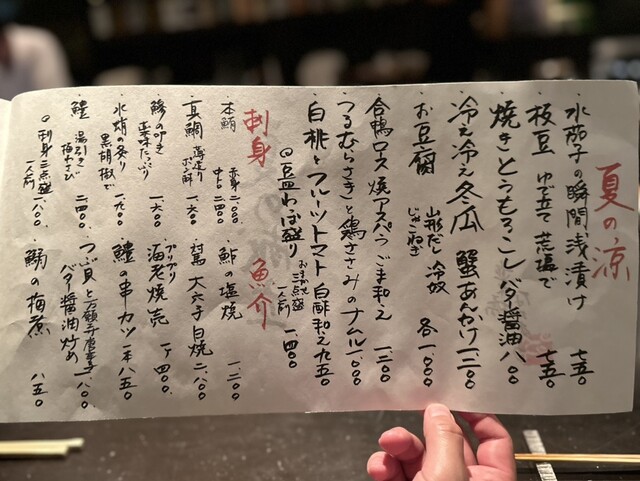 夏の涼
・水茄子の瞬間浅漬け 七五〇
・枝豆 ゆで立て 荒塩で 七五〇
・焼きとうもろこし バタ醤油 八〇〇
・冷え冷え冬瓜 蟹あんかけ 一、二〇〇
・お豆腐 山形だし 冷奴 じゃこねぎ 各一、〇〇〇
・合鴨ロース 焼アスパラ ごま和え 一、二〇〇
・つるむらさきと鶏ささみのナムル 一、一〇〇
・白桃とフルーツトマト 白酢和え 九五〇
◎豆皿わっぱ盛り おまかせ三点盛 一人前 一、四〇〇
刺身
・本鮪 赤身 二、〇〇〇 中トロ 二、四〇〇
・真鯛 薄造り ポン酢 一、八〇〇
・鯵のタタキ 薬味たっぷり 一、六〇〇
・水蛸の炙り 黒胡椒で 一、九〇〇
・鱧 湯引き 梅わさび 二、四〇〇
◎刺身三点盛 一人前 一、八〇〇
魚介
・鮎の塩焼 一、二〇〇
・対馬 大穴子 白焼 二、八〇〇
・プリプリ海老焼売 一ケ 四〇〇
・鱧の串カツ 一本 八五〇
・つぶ貝と万願寺唐辛子 バタ醤油炒め 一、八〇〇
・鰯の梅煮 八五〇